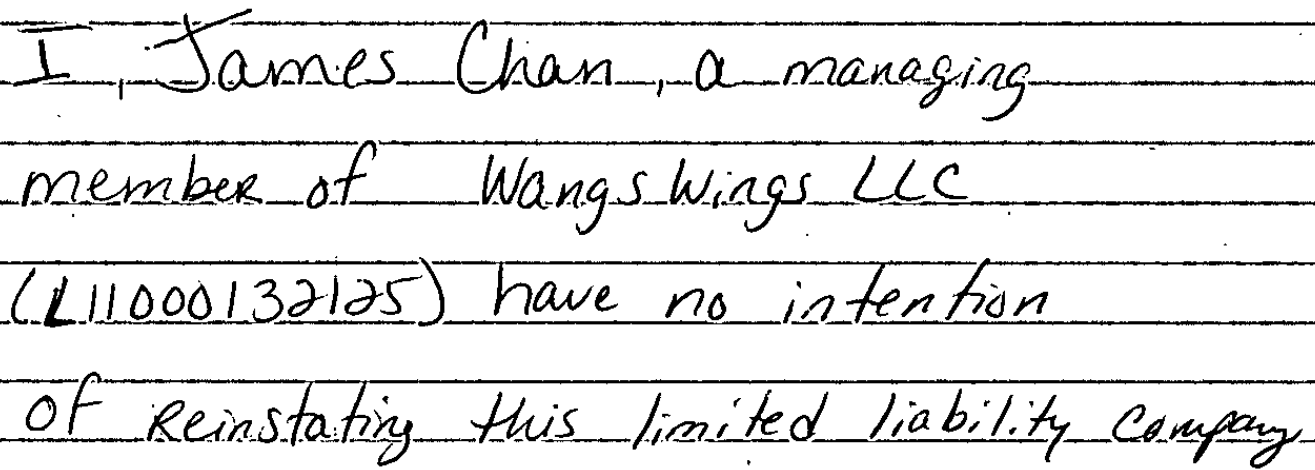 I, James Chan, a managing
member of Wangs Wings LLC
(L11000132125) have no intention
of Reinstating this limited liability company